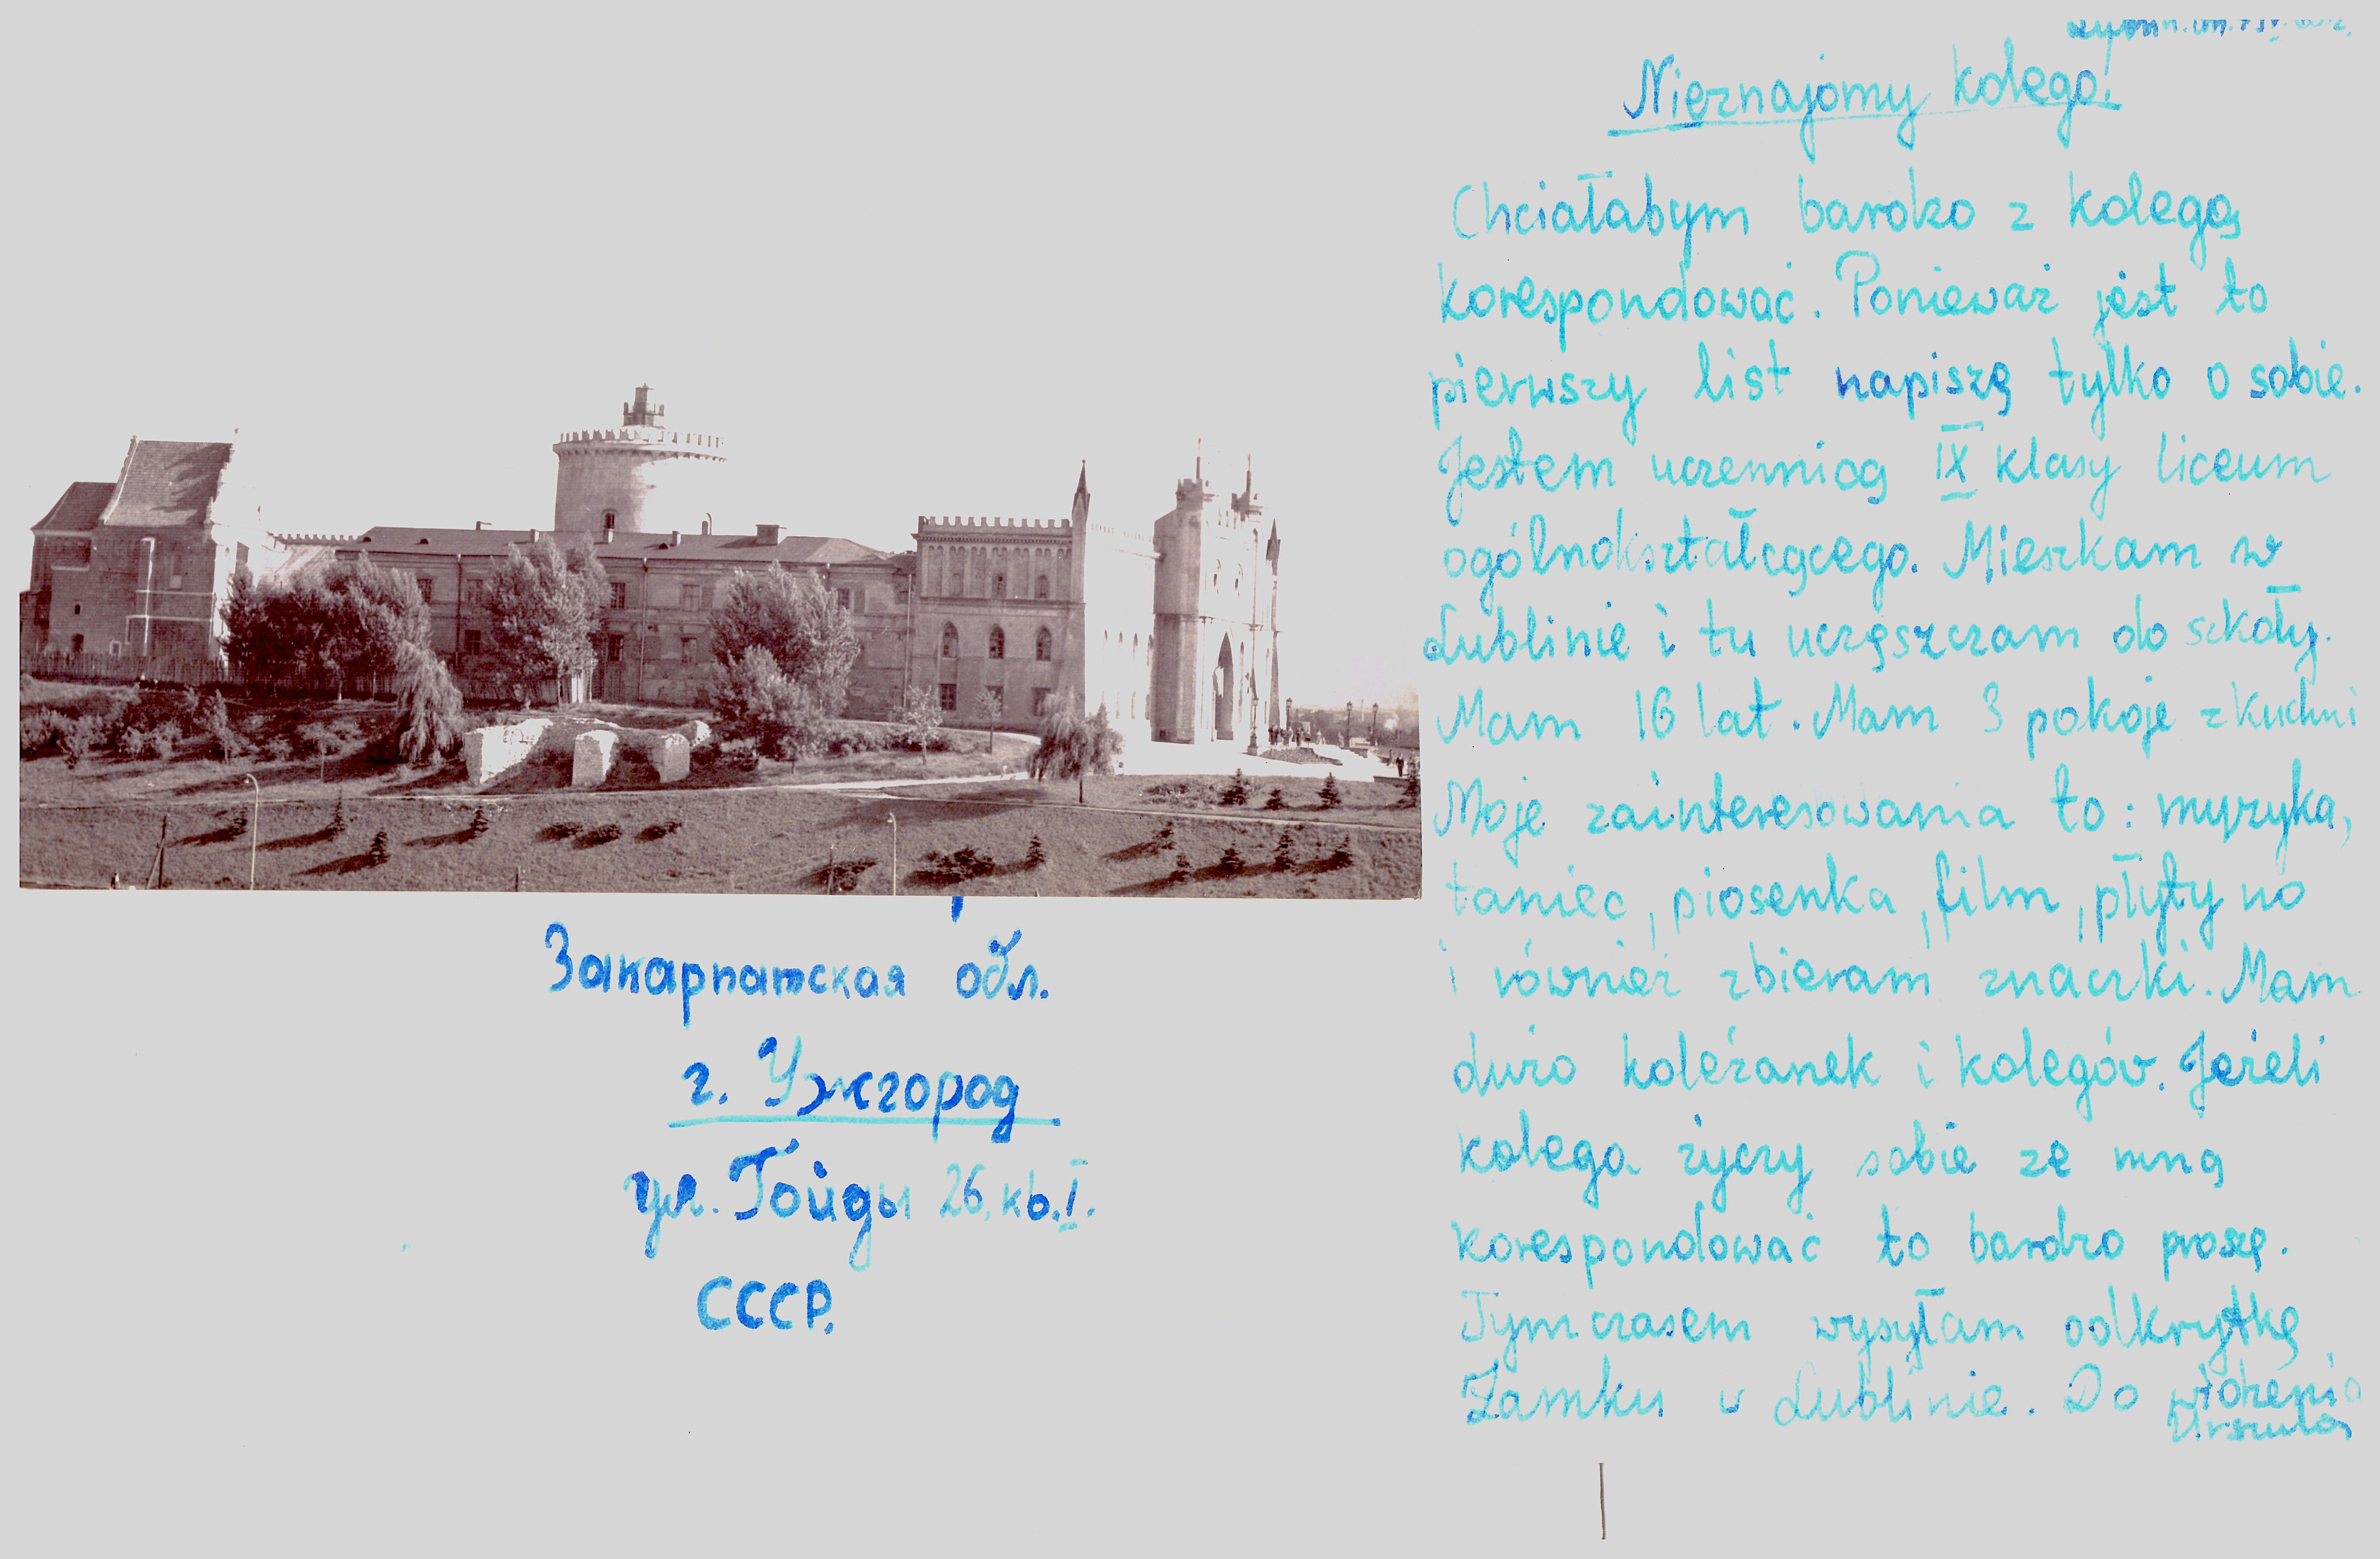 Nieznajomy kolego!
Chciałabym bardzo z kolegą
korespondować. Ponieważ jest to
pierwszy list napiszę tylko o sobie.
Jestem uczennicą IX klasy liceum
ogólnokształcącego. Mieszkam w
Lublinie i tu uczęszczam do szkoły.
Mam 16 lat. Mam 3 pokoje z kuchni
Moje zainteresowania to: muzyka,
taniec, piosenka, film, płyty no
i również zbieram znaczki. Mam
dużo koleżanek i kolegów. Jeżeli
kolega życzy sobie ze mną
korespondować to bardzo proszę.
Tymczasem wysyłam odkrytkę
Zamku w Lublinie. Do widzenia
Urszula
Закарпатская обл.
г. Ужгород
ул. Гойды 26, кв. I.
СССР.